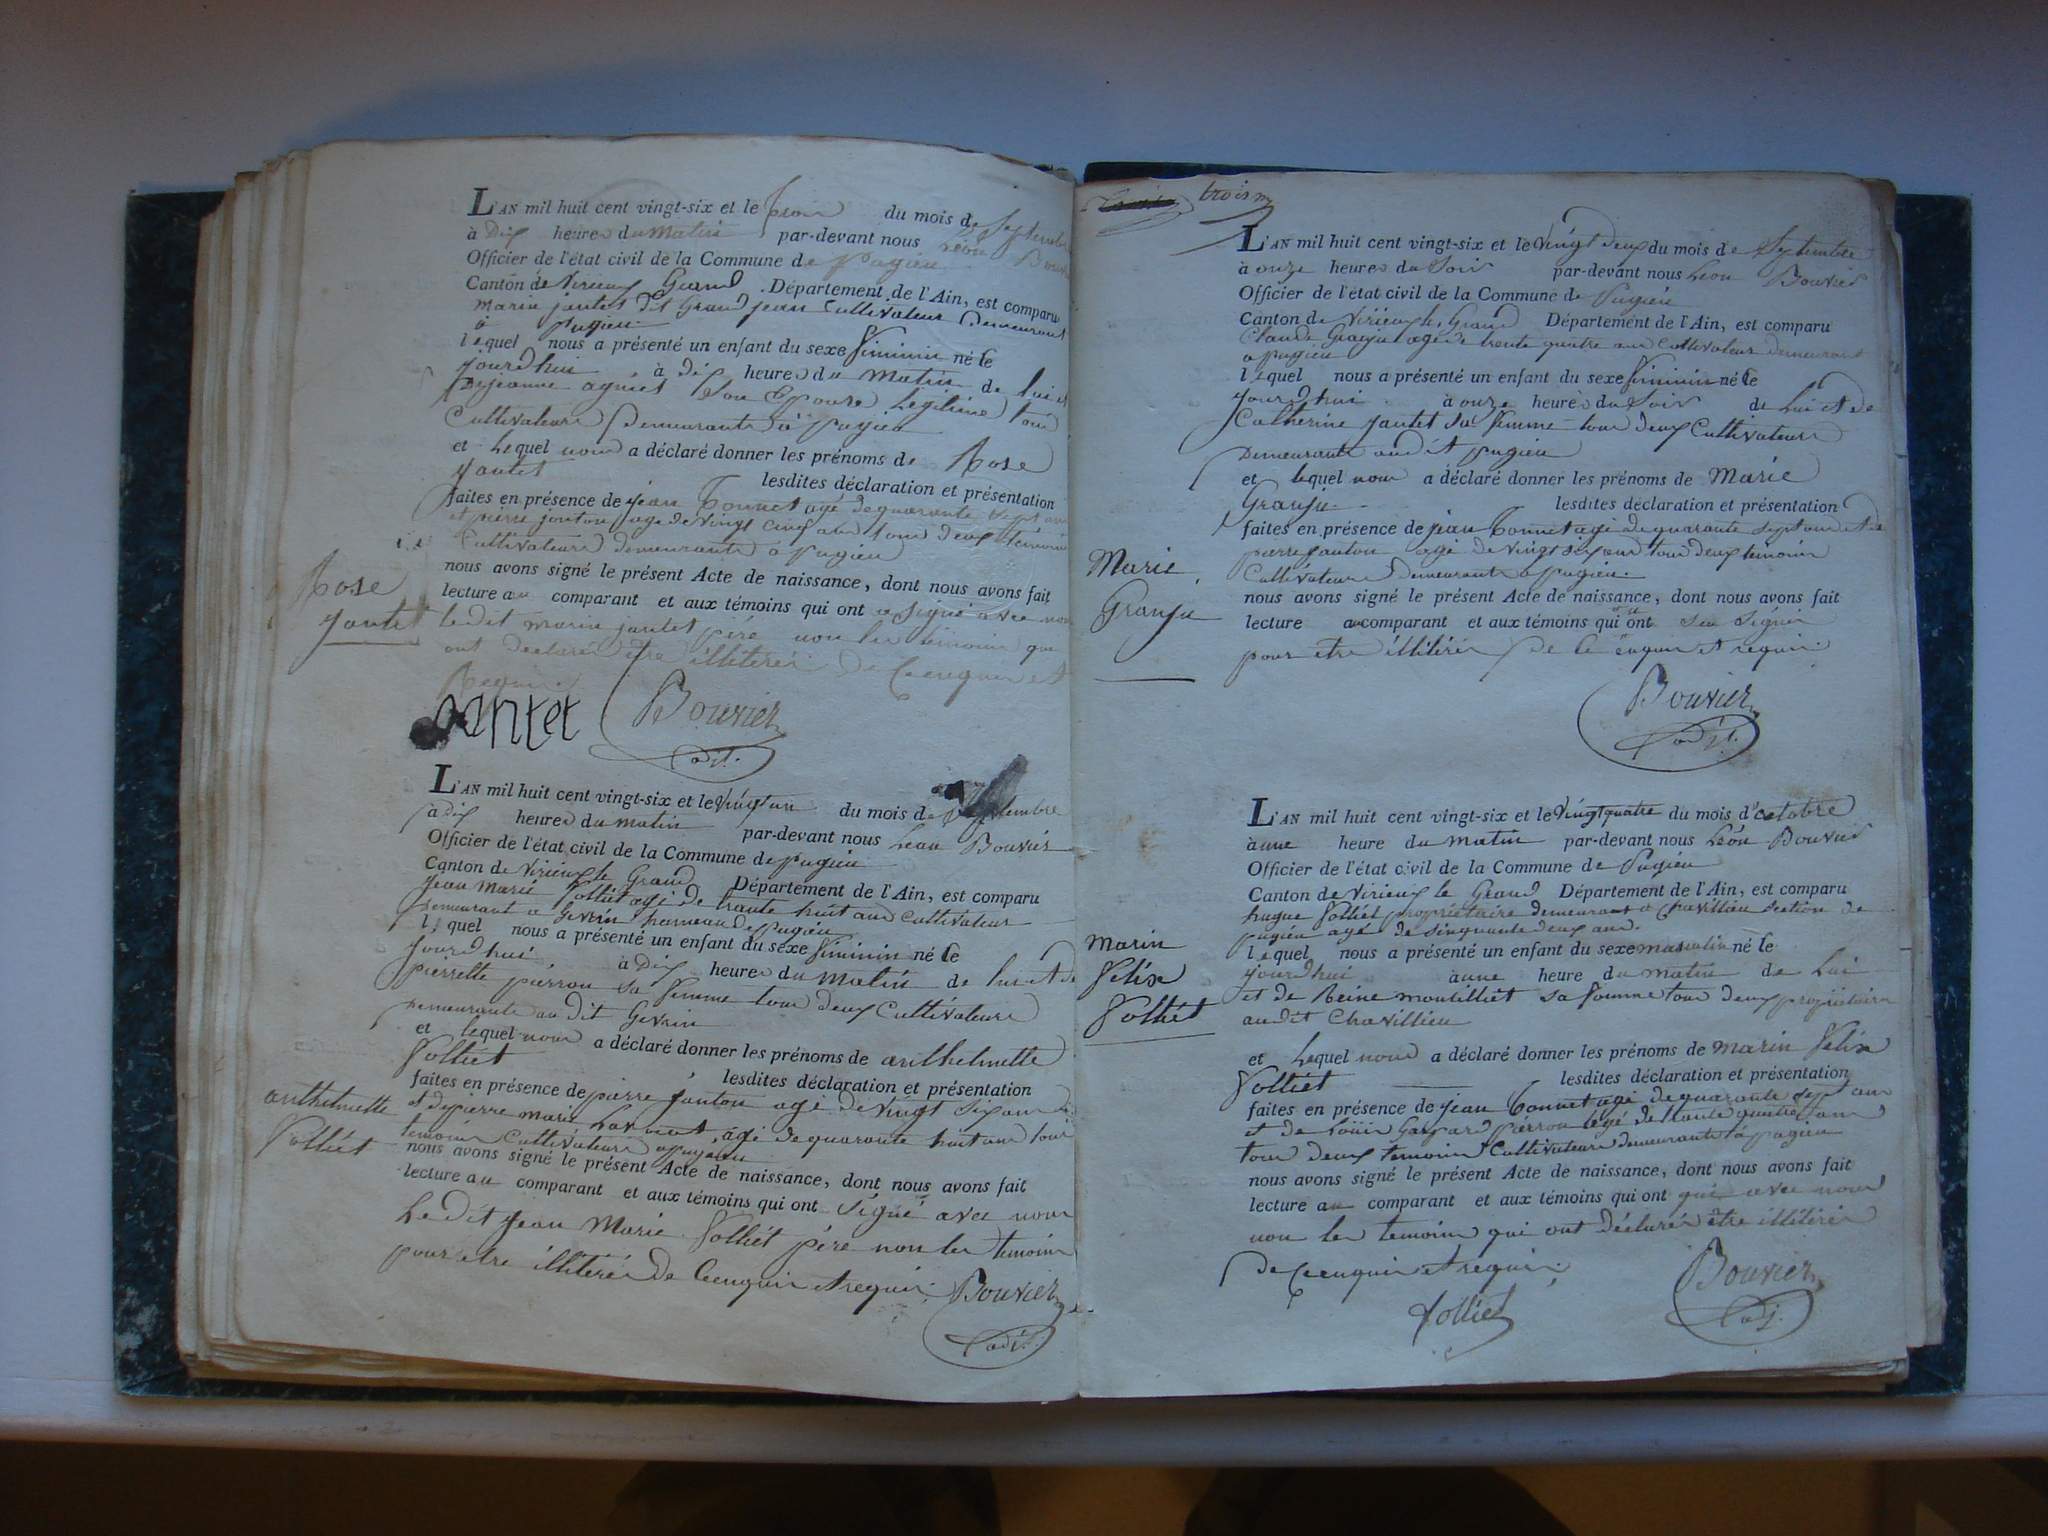 L'AN mil huit cent vingt-six et le trois du mois de Septembre
à Dix heures du Matin par-devant nous Léon Bouvier
Officier de l'état civil de la Commune de pugieu
Canton de Virieux Grand Département de l'Ain, est comparu
marin jantet dit Grand jean Cultivateur Demeurant
à pugieu
lequel nous a présenté un enfant du sexe féminin né le
jourdhui à dix heures du matin de lui et
Cultivateurs Demeurants à pugieu
et Lequel nous a déclaré donner les prénoms de Rose
jantet lesdites déclaration et présentation
faites en présence de jean Bonnet agé de quarante Sept ans
et pierre janton agé de vingt cinq ans tous deux témoins
Cultivateurs demeurants à pugieu
nous avons signé le présent Acte de naissance, dont nous avons fait
lecture au comparant et aux témoins qui ont a Signé avec nous
Ledit marin jantet père non les témoins qui
ont Déclarés être illitérés De Ce enquis et
Requis
Rose
jantet
jantet Bouvier
adj.
L'AN mil huit cent vingt-six et le vingt un du mois de Septembre
à Dix heures du matin par-devant nous Léon Bouvier
Officier de l'état civil de la Commune de pugieu
Canton de Virieux le Grand Département de l'Ain, est comparu
Jean Marie Volliet agé de trante huit ans Cultivateur
Demeurant a Gevrin hameau de pugieu
lequel nous a présenté un enfant du sexe féminin né le
jourdhui à Dix heures du matin de lui et de
pierrette pierron sa femme tous deux Cultivateurs
Demeurants au dit Gevrin
et lequel nous a déclaré donner les prénoms de anthelmette
Volliet lesdites déclaration et présentation
faites en présence de pierre janton agé de vingt six ans
et de pierre marie agé de quarante huit ans tous
temoins Cultivateurs a pugieu
nous avons signé le présent Acte de naissance, dont nous avons fait
lecture au comparant et aux témoins qui ont Signé avec nous
Le Dit Jean Marie Volliet père non les temoins
pour etre illitérés De Ce enquis et requis
anthelmette
Volliet
Bouvier
adj.
trois
L'AN mil huit cent vingt-six et le vingt deux du mois de Septembre
à onze heures du Soir par-devant nous Léon Bouvier
Officier de l'état civil de la Commune de Pugieu
Canton de Virieux le Grand Département de l'Ain, est comparu
Claude Granju agé de trente quatre ans Cultivateur demeurant
a pugieu
lequel nous a présenté un enfant du sexe féminin né le
jourdhui à onze heures du Soir de Lui et de
Catherine jantet sa femme tous deux Cultivateurs
Demeurants audit pugieu
et lequel nous a déclaré donner les prénoms de Marie
Granju lesdites déclaration et présentation
faites en présence de jean Bonnet agé de quarante sept ans et de
pierre janton agé de vingt six ans tous deux temoins
Cultivateurs Demeurants a pugieu
nous avons signé le présent Acte de naissance, dont nous avons fait
lecture au comparant et aux témoins qui ont seu Signer
pour etre illitérés De Ce enquis et requis
Marie
Granju
Bouvier
adj.
L'AN mil huit cent vingt-six et le vingtquatre du mois d'octobre
à une heure du matin par-devant nous Léon Bouvier
Officier de l'état civil de la Commune de Pugieu
Canton de Virieux le Grand Département de l'Ain, est comparu
hugue Volliet propriétaire demeurant a Chavillieu section de
pugieu agé de sinquante deux ans
lequel nous a présenté un enfant du sexe masculin né le
jourdhui à une heure du matin de Lui
et de Reine montilliet sa femme tous deux propriétaires
audit Chavillieu
et Lequel nous a déclaré donner les prénoms de Marin Félix
Volliet lesdites déclaration et présentation
faites en présence de jean Bonnet agé de quarante sept ans
et de Louis Gaspard pierron agé de trante quatre ans
tous deux temoins Cultivateurs demeurants à pugieu
nous avons signé le présent Acte de naissance, dont nous avons fait
lecture au comparant et aux témoins qui ont avec nous
non les temoins qui ont déclarés être illitérés
De Ce enquis et requis
Marin
Félix
Volliet
Volliet
Bouvier
adj.